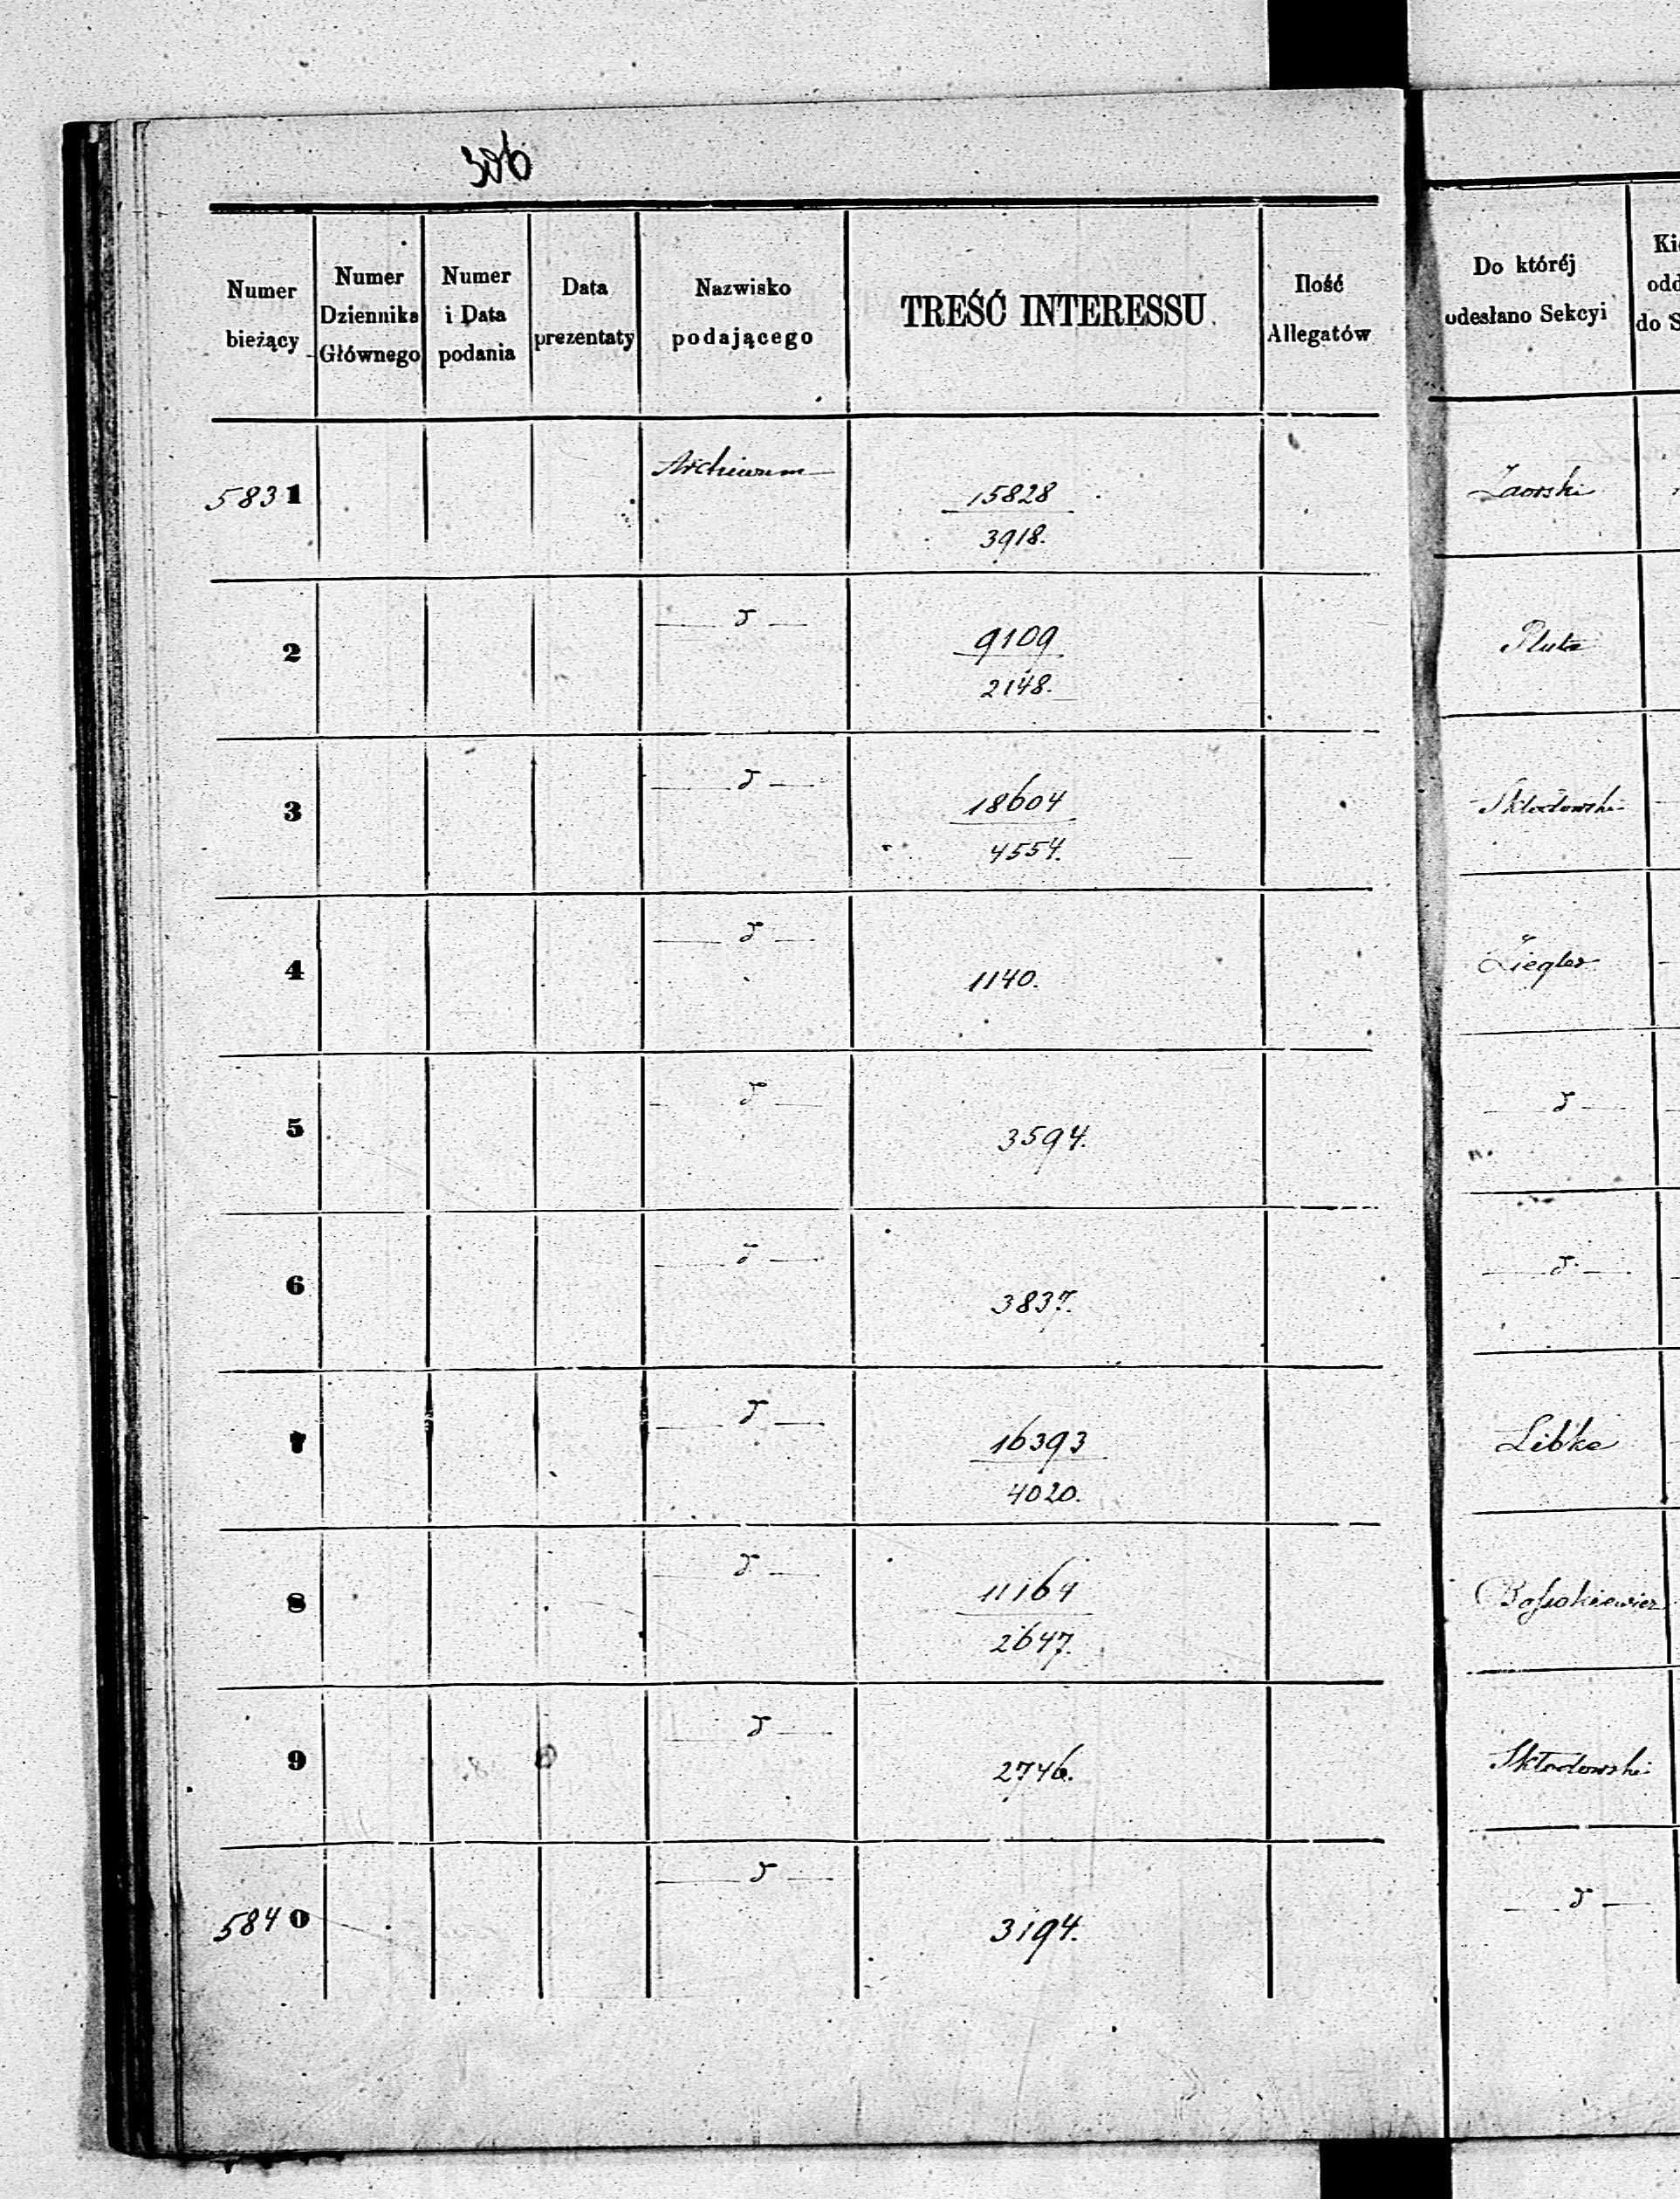 306
Numer bieżący | Numer Dziennika Głównego | Numer i Data podania | Data prezentaty | Nazwisko podającego | TREŚĆ INTERESSU | Ilość Allegatów | Do któréj odesłano Sekcyi
5831 | Archiwum | 15828 / 3918. | Zaorski
2 | — d — | 9109 / 2148. | Pluta
3 | — d — | 18604 / 4554. | Skłodowski
4 | — d — | 1140. | Ziegler
5 | — d — | 3594. | — d —
6 | — d — | 3837. | — d —
7 | — d — | 16393 / 4020. | Libke
8 | — d — | 11164 / 2647.
9 | — d — | 2746. | Skłodowski
5840 | — d — | 3194. | — d —